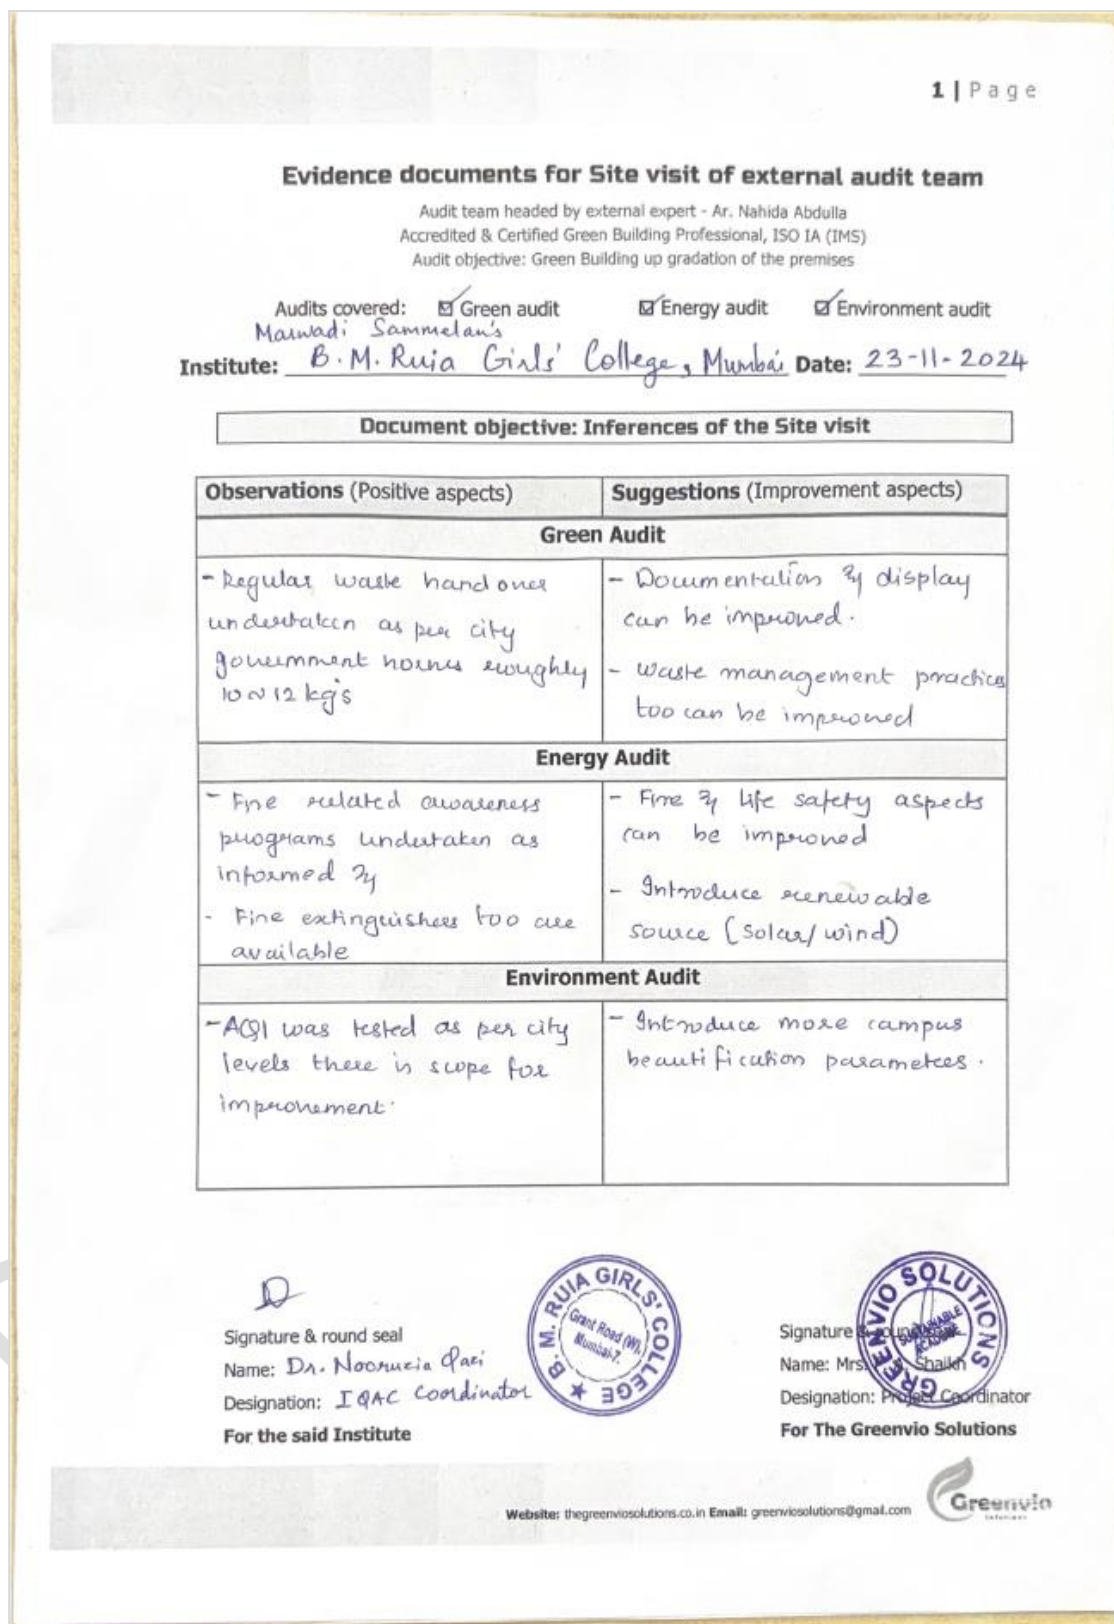 1 | Page
Evidence documents for Site visit of external audit team
Audit team headed by external expert - Ar. Nahida Abdulla
Accredited & Certified Green Building Professional, ISO IA (IMS)
Audit objective: Green Building up gradation of the premises
Audits covered: ☑ Green audit ☑ Energy audit ☑ Environment audit
Marwadi Sammelan's
Institute: B.M. Ruia Girls' College, Mumbai Date: 23-11-2024
Document objective: Inferences of the Site visit
Observations (Positive aspects)
Suggestions (Improvement aspects)
Green Audit
- Regular waste handover
undertaken as per city
government norms roughly
10 ~ 12 kg's
- Documentation & display
can be improved.
- Waste management practices
too can be improved
Energy Audit
- Fire related awareness
programs undertaken as
informed &
- Fire extinguishers too are
available
- Fire & life safety aspects
can be improved
- Introduce renewable
source (solar/wind)
Environment Audit
- AQI was tested as per city
levels there is scope for
improvement.
- Introduce more campus
beautification parameters.
Signature & round seal
Name: Dr. Noorusia Qazi
Designation: IQAC Coordinator
For the said Institute
B. M. RUIA GIRLS' COLLEGE
Grant Road (W),
Mumbai-7.
GREENVIO SOLUTIONS
SUSTAINABLE
Signature &
Name: Mrs. Shaikh
Designation: Project Coordinator
For The Greenvio Solutions
Website: thegreenviosolutions.co.in Email: greenviosolutions@gmail.com
Greenvio